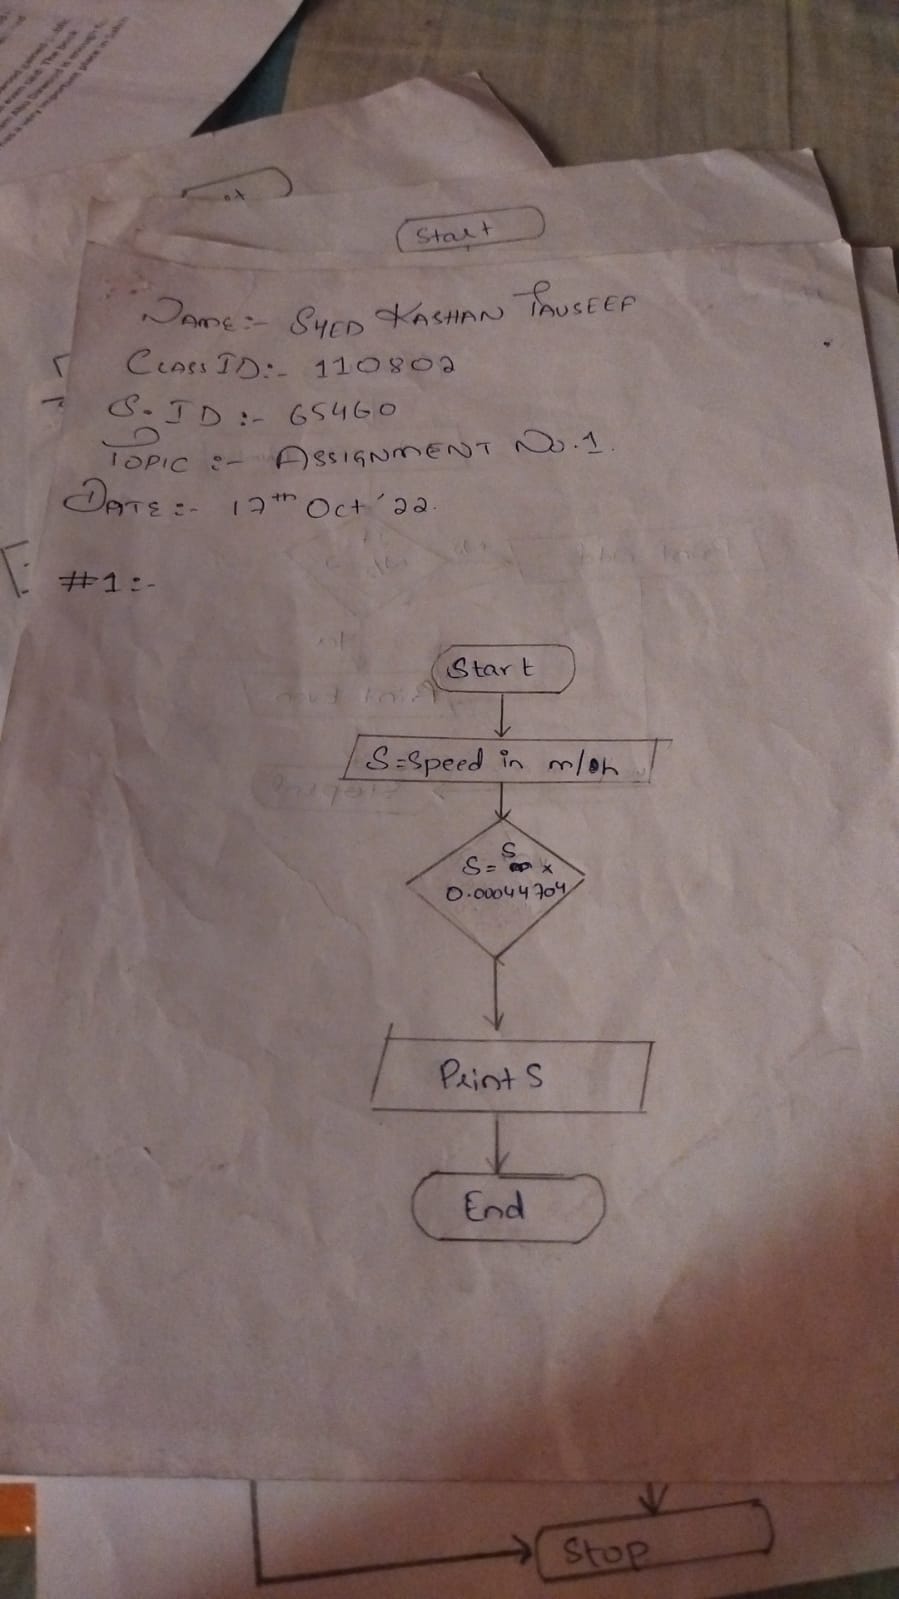 Start
NAME:- SYED KASHAN TAUSEEF
CLASS ID:- 110802
S. ID :- 65460
TOPIC :- ASSIGNMENT No.1.
DATE :- 17th Oct '22.
#1:-
Start
S=Speed in m/h
S= S x
0.00044704
Print S
End
Stop